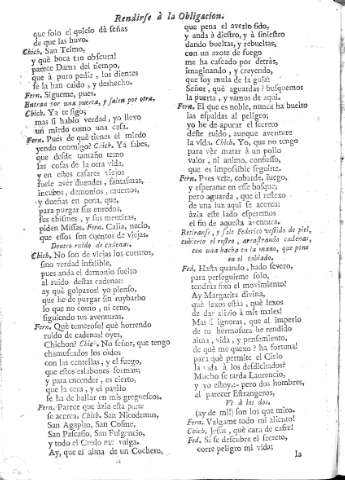 Rendirse à la Obligacion.
que solo el quicio dà señas
de que las huvo.
Chich. San Telmo,
y què boca tan obscura!
parece Dama del tiempo,
que à puro pedir, los dientes
se la han caido, y deshecho.
Fern. Sigueme, pues.
Entran por una puerta, y salen por otra.
Chich. Ya te sigo,
mas si hablo verdad, yo llevo
un miedo como una casa.
Fern. Pues de què tienes el miedo
yendo conmigo? Chich. Ya sabes,
que desde tamaño temo
las cosas de la otra vida,
y en estos casares viejos
suele aver duendes, fantasmas,
incubos, demonios,
y dueñas en pena, que,
para purgar sus enredos,
sus chismes, y sus mentiras,
piden Missas. Fern. Calla, necio,
que essos son cuentos de viejas.
Dentro ruido de cadenas.
Chich. No son de viejos los cuentos,
sino verdad infalible,
pues anda el demonio suelto
al ruido destas cadenas:
ay què golpazos! yo pienso,
que he de purgar sin ruybarbo
lo que no como, ni ceno,
siguiendo tus aventuras.
Fern. Què temeroso! què horrendo
ruido de cadenas! oyes,
Chichon? Chic. No, señor, que tengo
chamuscados los oidos
con las centellas, y el fuego,
que essos eslabones forman;
y para encender, es cierto,
que la cera, y el pavilo
se ha de hallar en mis greguescos.
Fern. Parece que àzia esta parte
se acerca. Chich. San Nicodemus,
San Agapito, San Cosme,
San Pascasio, San Fulgencio,
y todo el Credo me valga.
Ay, que el alma de un Cochero,
que pena el averlo sido,
y anda à diestro, y à siniestro
dando bueltas, y rebueltas,
con un azote de fuego
me ha cascado por detràs,
imaginando, y creyendo,
que soy mula de la guia!
Señor, què aguardas? busquemos
la puerta, y vamos de aqui.
Fern. El que es noble, nunca ha buelto
las espaldas al peligro;
yo he de apurar el secreto
deste ruido, aunque aventure
la vida. Chich. Yo, que no tengo
para vèr matar à un pollo
valor, ni animo, confiesso,
que es impossible seguirte.
Fern. Pues vete, cobarde, luego,
y esperame en esse bosque;
pero aguarda, que el reflexo
de una luz aqui se acerca:
àzia este lado esperemos
el fin de aquesta aventura.
Retiranse, y sale Federico vestido de piel,
cubierto el rostro, arrastrando cadenas,
con una hacha en la mano, que pone
en el tablado.
Fed. Hasta quando, hado severo,
para perseguirme solo,
tendràs fixo el movimiento?
Ay Margarita divina,
què lexos estàs, què lexos
de dar alivio à mis males!
Mas si ignoras, que al imperio
de tu hermosura he rendido
alma, vida, y pensamiento,
de què me quexo? ha fortuna!
para què permite el Cielo
la vida à los desdichados?
Mucho se tarda Laurencio,
y yo estoy:- pero dos hombres,
al parecer Estrangeros,
Ve à los dos.
(ay de mi!) son los que miro.
Fern. Valgame todo mi aliento!
Chich. Jesus, què cara de casco!
Fed. Si se descubre el secreto,
corre peligro mi vida:
la